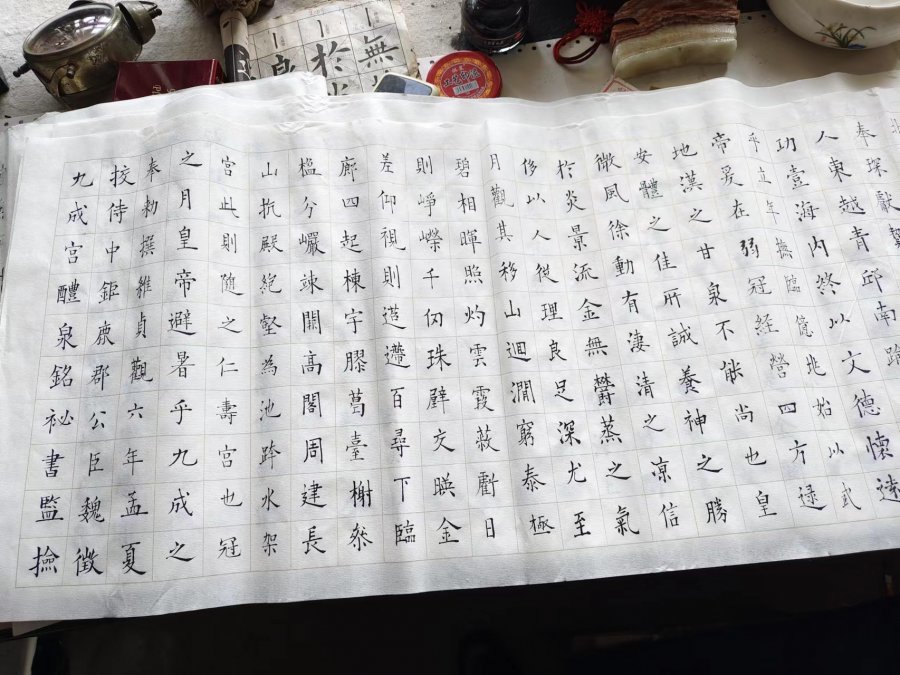 九成宮醴泉銘祕書監撿
挍侍中鉅鹿郡公臣魏徵
奉勑撰維貞觀六年孟夏
之月皇帝避暑乎九成之
宮此則隨之仁壽宮也冠
山抗殿絶壑為池跨水架
楹分巖竦闕高閣周建長
廊四起棟宇膠葛臺榭叅
差仰視則迢遰百尋下臨
則崢嶸千仞珠璧交暎金
碧相暉照灼雲霞蔽虧日
月觀其移山迴澗窮泰極
侈以人從理良足深尤至
於炎景流金無鬱蒸之氣
微風徐動有淒清之凉信
安體之佳所誠養神之勝
地漢之甘泉不能尚也皇
帝爰在弱冠經營四方逯
乎立年撫臨億兆始以武
功壹海內終以文德懷遠
人東越青邱南踰
奉琛獻贄
無
於